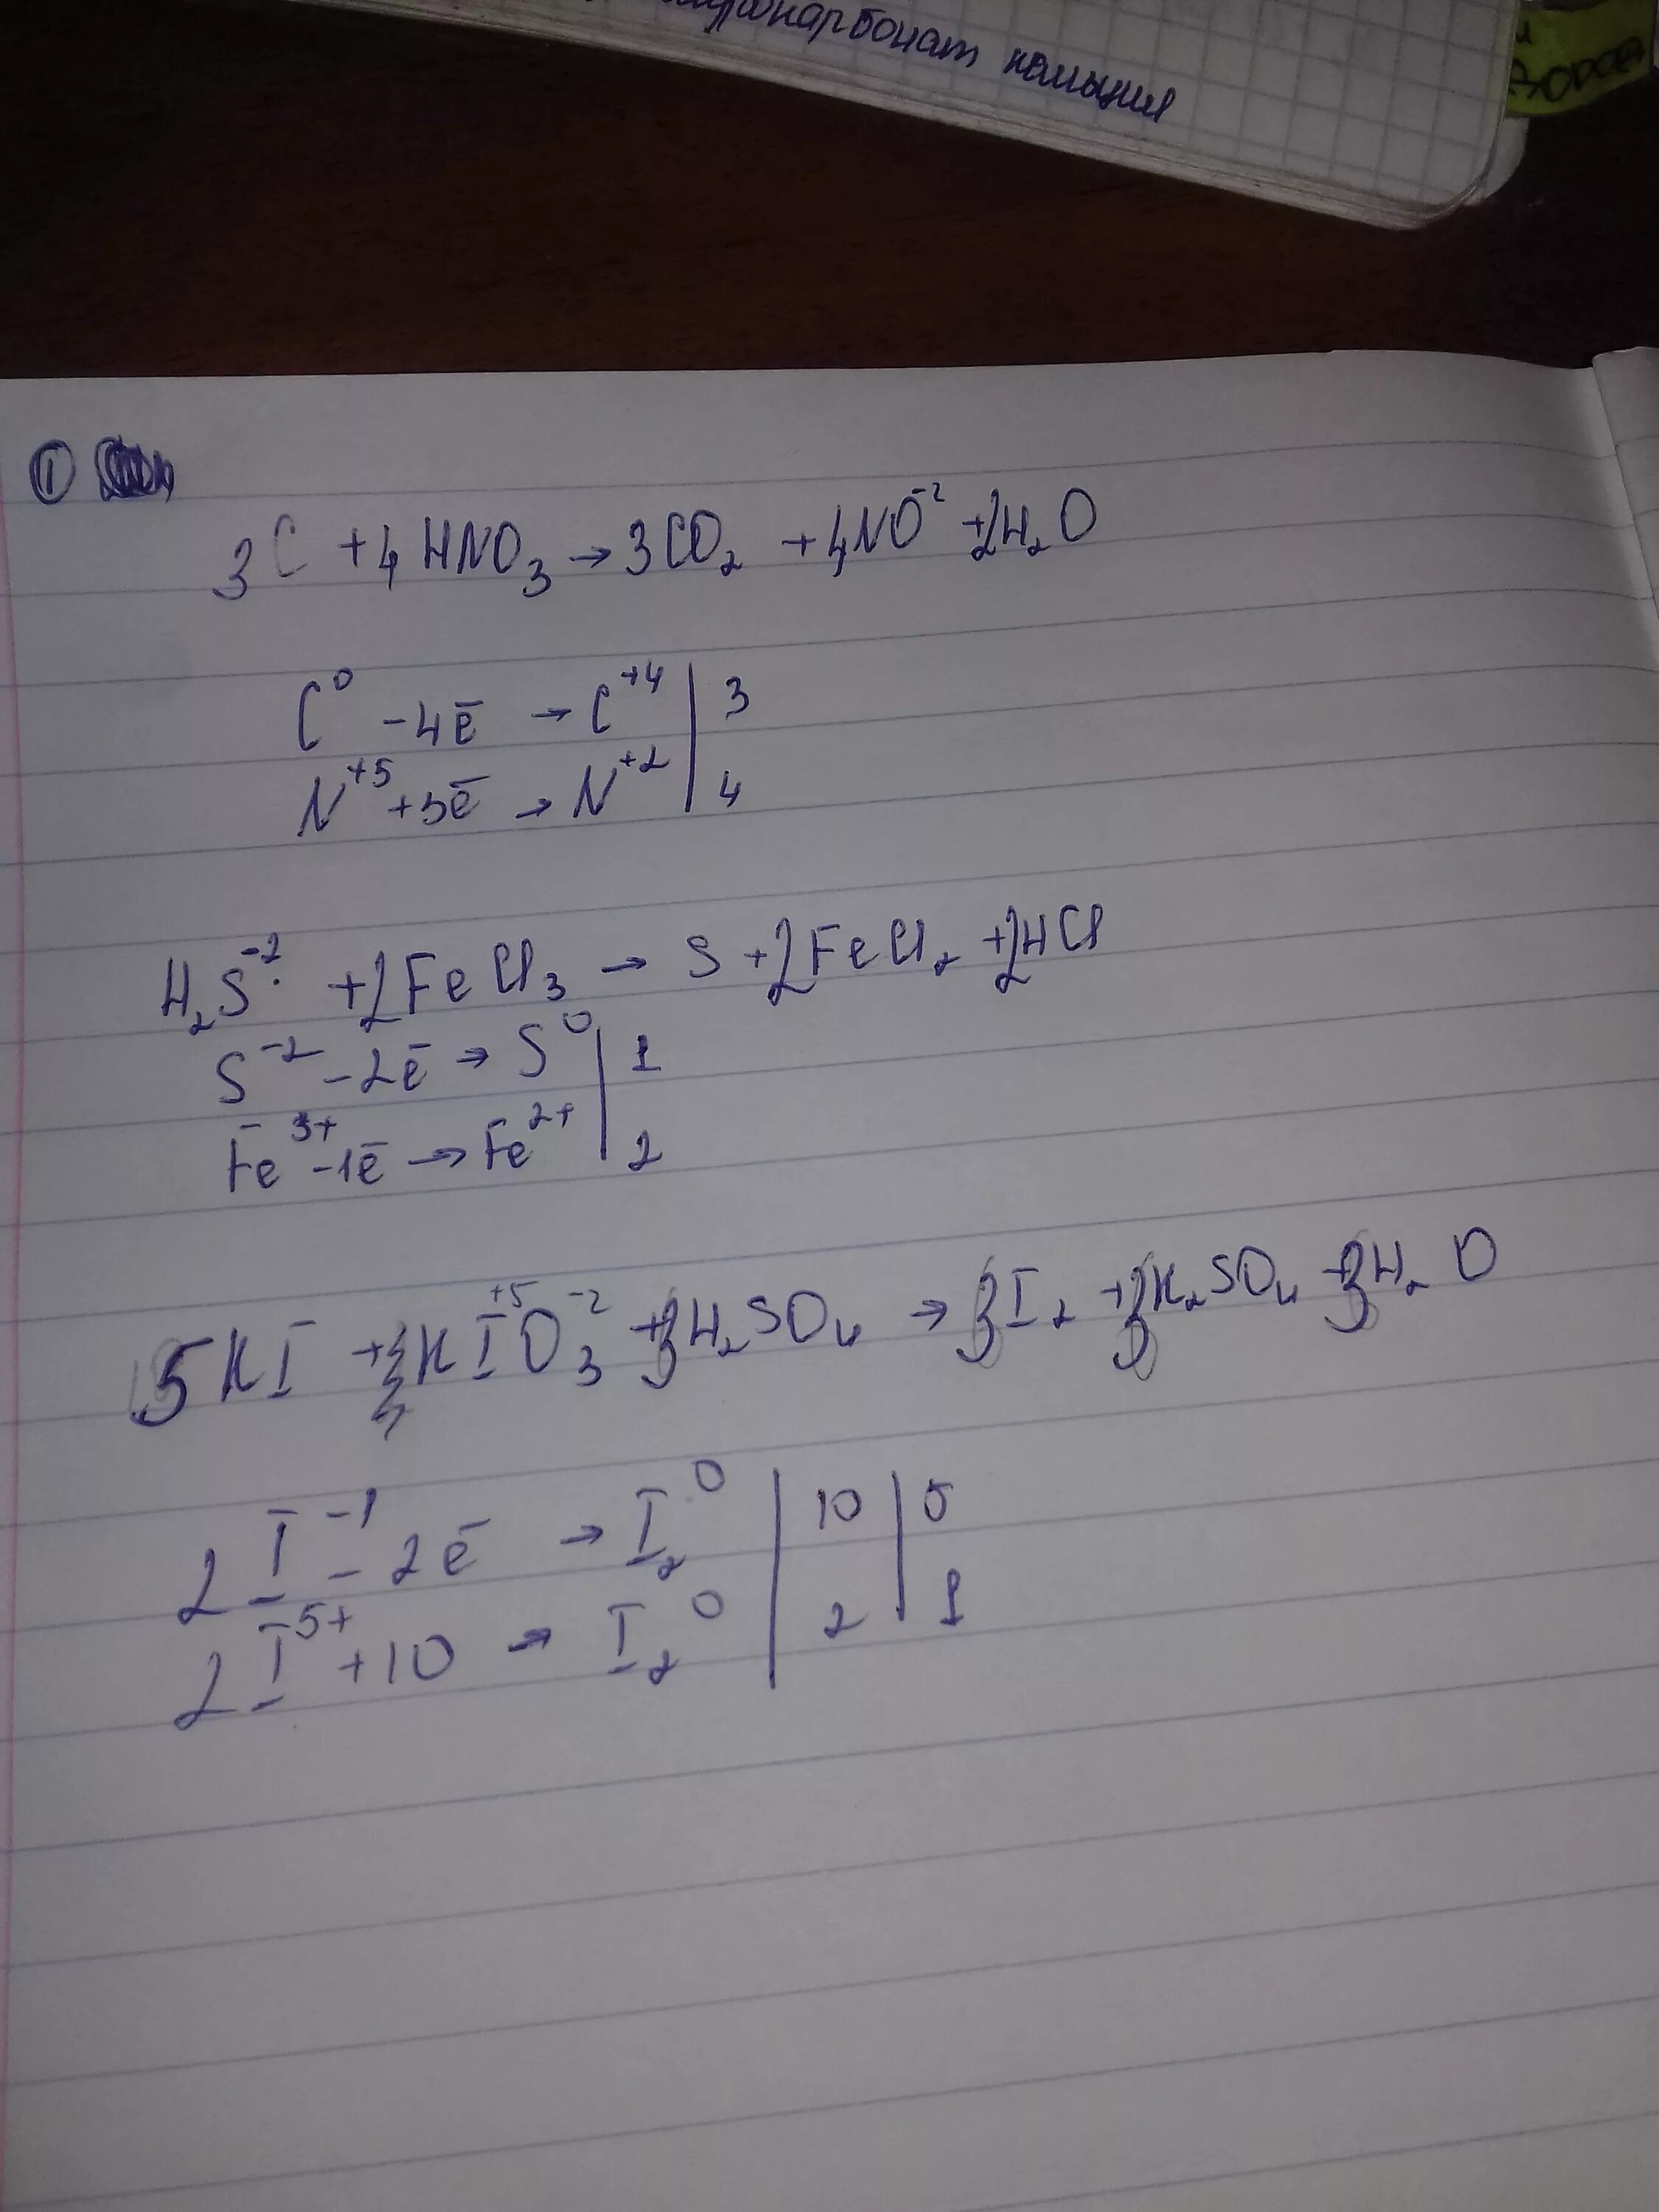 карбонат кальция
①
3C + 4HNO₃ → 3CO₂ + 4NO⁻² + 2H₂O
C⁰ - 4ē → C⁺⁴ | 3
N⁺⁵ + 3ē → N⁺² | 4
H₂S⁻² + 2FeCl₃ → S + 2FeCl₂ + 2HCl
S⁻² - 2ē → S⁰ | 1
Fe³⁺ - 1ē → Fe²⁺ | 2
5KI + KI⁺⁵O₃⁻² + 3H₂SO₄ → 3I₂ + 3K₂SO₄ + 3H₂O
2I⁻¹ - 2ē → I₂⁰ | 10 | 5
2I⁵⁺ + 10 → I₂⁰ | 2 | 1